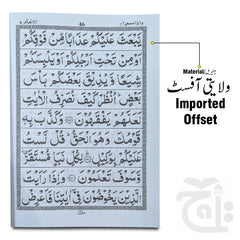 واذا سمعوا ٧
46
الانعام ٦
يَّبْعَثَ عَلَيْكُمْ عَذَابًا مِّنْ فَوْقِكُمْ
اَوْ مِنْ تَحْتِ اَرْجُلِكُمْ اَوْ يَلْبِسَكُمْ
شِيَعًا وَّيُذِيْقَ بَعْضَكُمْ بَاْسَ
بَعْضٍ ؕ اُنْظُرْ كَيْفَ نُصَرِّفُ الْاٰيٰتِ
لَعَلَّهُمْ يَفْقَهُوْنَ وَكَذَّبَ بِهٖ
قَوْمُكَ وَهُوَ الْحَقُّ ؕ قُلْ لَّسْتُ
عَلَيْكُمْ بِوَكِيْلٍ لِكُلِّ نَبَاٍ مُّسْتَقَرٌّ
وَّسَوْفَ تَعْلَمُوْنَ وَاِذَا رَاَيْتَ
الَّذِيْنَ يَخُوْضُوْنَ فِيْۤ اٰيٰتِنَا فَاَعْرِضْ
Material
ولایتی آفسٹ
Imported
Offset